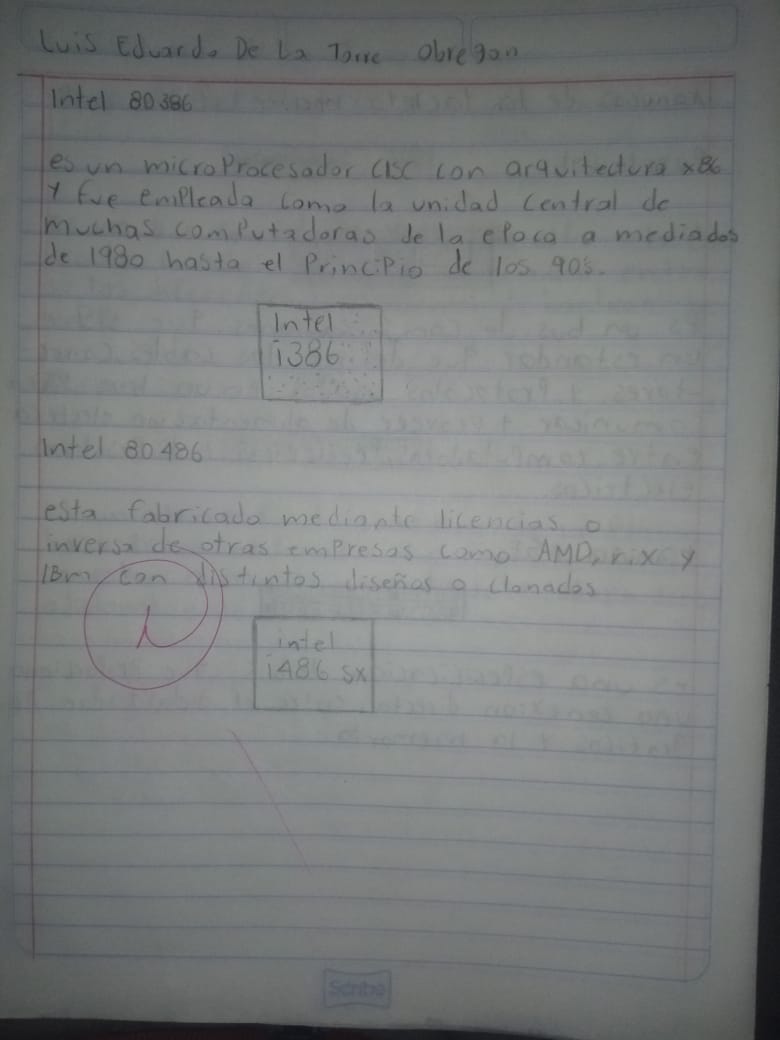 Luis Eduardo De La Torre Obregon
Intel 80386
es un microProcesador CISC con arquitectura x86
Y fue empleada como la unidad central de
muchas comPutadoras de la ePoca a mediados
de 1980 hasta el PrinciPio de los 90s.
Intel
i386
Intel 80486
esta fabricado mediante licencias o
inversa de otras emPresas como AMD, rix y
IBm con distintos diseños o clonados
intel
i486 SX
Scribe